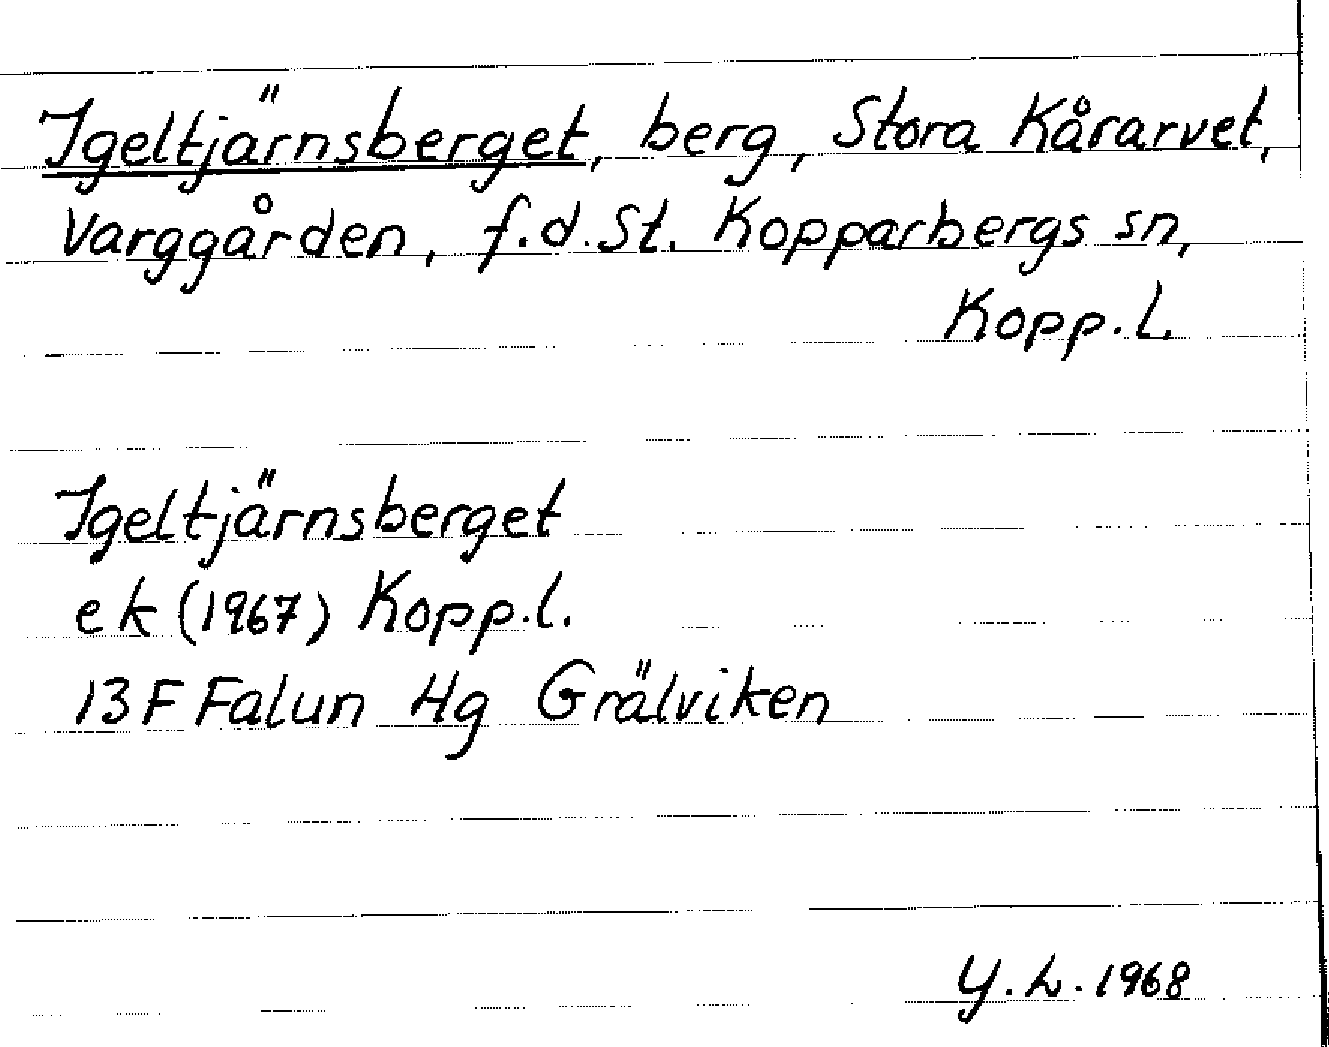 Igeltjärnsberget, berg, Stora Kårarvet,
Varggården, f.d. St. Kopparbergs sn,
Kopp. L
Igeltjärnsberget
ek (1967) Kopp. l.
13 F Falun Hg Grälviken
Y. L. 1968